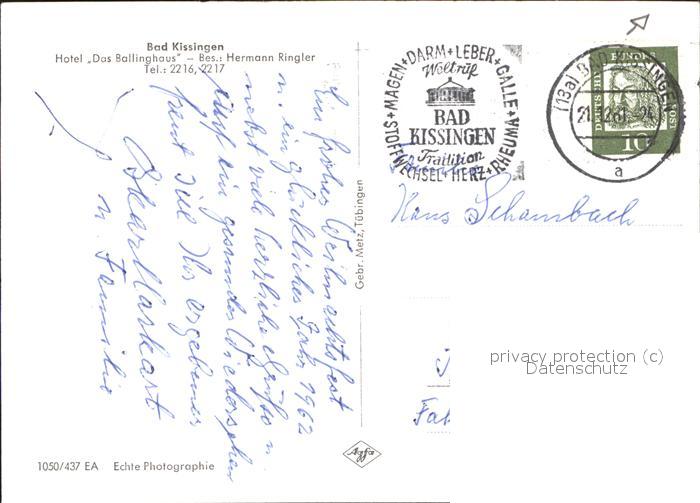 Bad Kissingen
Hotel „Das Ballinghaus" – Bes.: Hermann Ringler
Tel.: 2216, 2217
Ein frohes Weihnachtsfest
u. ein glückliches Jahr 1962
nebst viele herzliche Grüße u.
auf ein gesundes Wiedersehen
freut sich Ihr ergebener
Oskar
u. Familie
Gebr. Metz, Tübingen
STOFFWECHSEL + MAGEN + DARM + LEBER + GALLE + RHEUMA + HERZ
Weltruf
BAD
KISSINGEN
Tradition
(13a) BAD KISSINGEN
a
DEUTSCHE BUNDESPOST
10
Hans Schambach
privacy protection (c)
Datenschutz
Agfa
1050/437 EA Echte Photographie